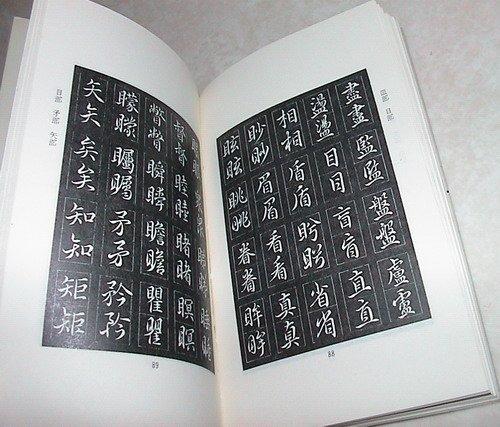 皿部 目部
盡盡 監監 盤盤 盧盧
盪盪 目目 盲盲 直直
相相 盾盾 盻盻 省省
眇眇 眉眉 看看 真真
眩眩 眺眺 眷眷 眸眸
88
督督 睦睦 睹睹 瞑瞑
瞥瞥 瞬瞬 瞻瞻 瞿瞿
矇矇 矚矚 矛矛 矜矜
矢矢 矣矣 知知 矩矩
目部 矛部 矢部
89